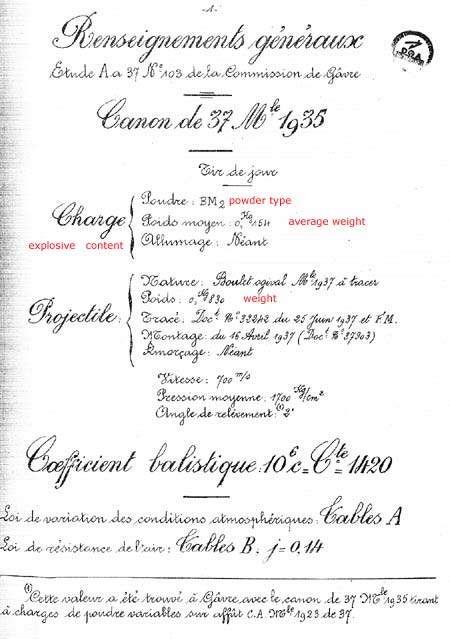 -1-
Renseignements généraux
Etude A a 37 N° 103 de la Commission de Gâvre
Canon de 37 Mle 1935
Tir de jour
Charge
Poudre: BM2 powder type
Poids moyen: 0,Kg154 average weight
Allumage: Néant
explosive content
Projectile:
Nature: Boulet ogival Mle 1937 à tracer
Poids: 0,Kg830 weight
Tracé: Doct N° 32242 du 25 Juin 1937 et F.M.
Montage: du 16 Avril 1937 (Doct N° 37303)
Amorçage: Néant
Vitesse: 700 m/s
Pression moyenne: 1700 Kg/cm2
Angle de relèvement: (1) 2'
Coefficient balistique: 10⁶c = Cte = 1420
Loi de variation des conditions atmosphériques: Tables A
Loi de résistance de l'air: Tables B; j=0,14
(1) Cette valeur a été trouvé à Gâvre avec le canon de 37 Mle 1935 tirant
à charges de poudre variables sur affût C.A. Mle 1923 de 37.